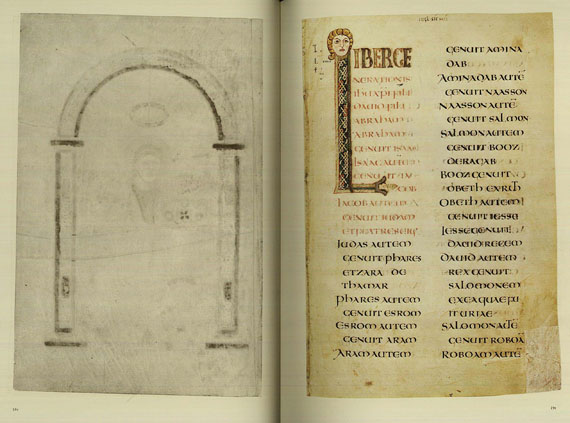 LIBER GE
NERATIONIS
IHU XPI FILII
DAUID FILII
ABRAHAM
ABRAHAM
GENUIT ISAAC
ISAAC AUTEM
GENUIT IA
COB
IACOB AUTEM
GENUIT IUDAM
ET FRATRES EIUS
IUDAS AUTEM
GENUIT PHARES
ET ZARA DE
THAMAR
PHARES AUTEM
GENUIT ESROM
ESROM AUTEM
GENUIT ARAM
ARAM AUTEM
GENUIT AMINA
DAB
AMINADAB AUTĒ
GENUIT NAASSON
NAASSON AUTĒ
GENUIT SALMON
SALMON AUTEM
GENUIT BOOZ
DE RACAB
BOOZ GENUIT
OBETH EX RUTH
OBETH AUTEM
GENUIT IESSE
IESSE GENUIT
DAUID REGEM
DAUID AUTEM
REX GENUIT
SALOMONEM
EX EA QUAE FU
IT URIAE
SALOMON AUTĒ
GENUIT ROBOĀ
ROBOAM AUTĒ